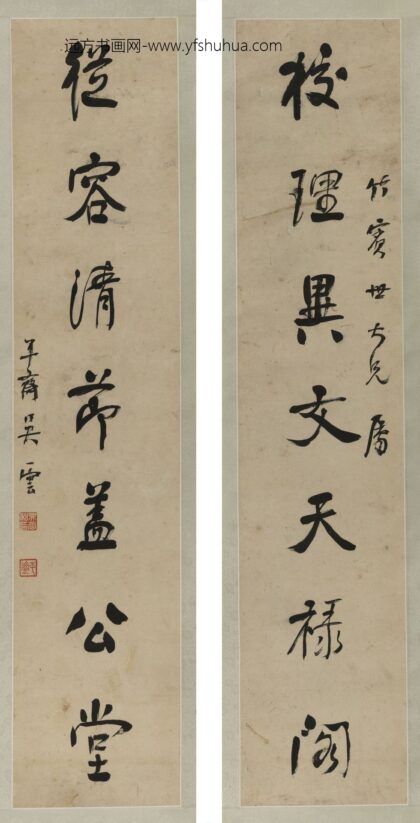 远方书画网-www.yfshuhua.com
竹賓世大兄屬
校理異文天祿閣
從容清節蓋公堂
平齋吳雲